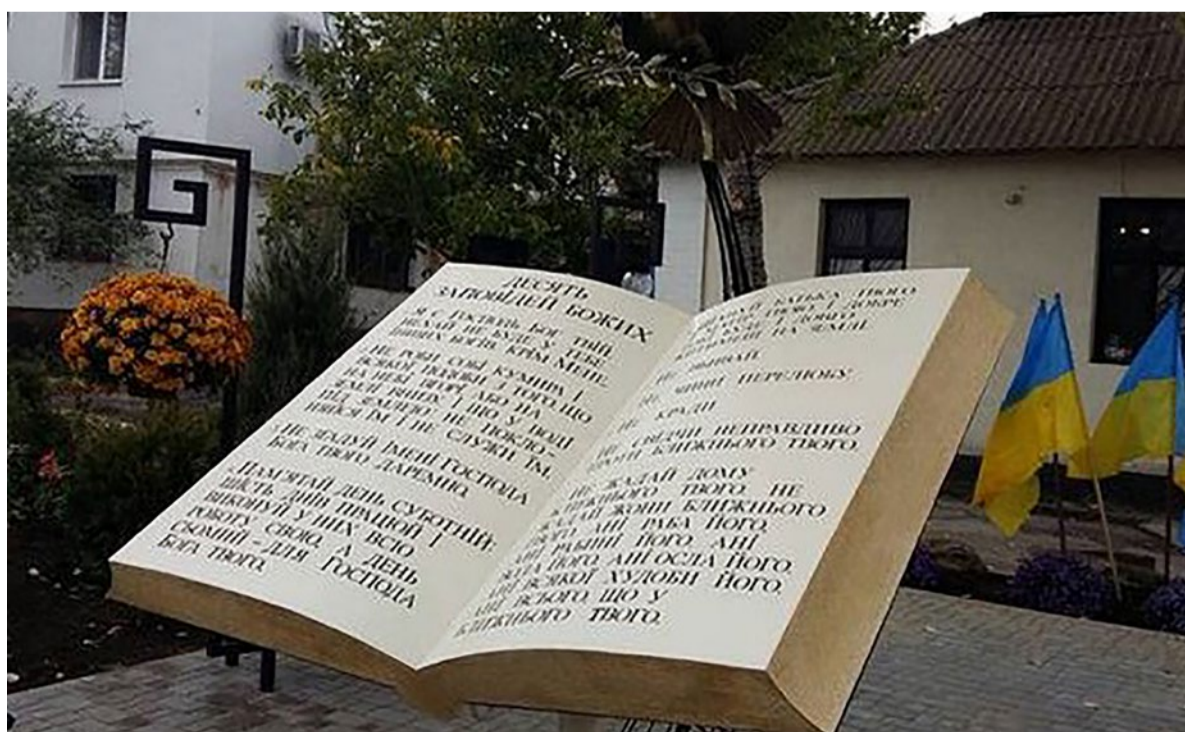 ДЕСЯТЬ
ЗАПОВІДЕЙ БОЖИХ
Я Є ГОСПОДЬ БОГ ТВІЙ.
НЕХАЙ НЕ БУДЕ У ТЕБЕ
ІНШИХ БОГІВ КРІМ МЕНЕ.
НЕ РОБИ СОБІ КУМИРА І
ВСЯКОЇ ПОДОБИ З ТОГО, ЩО
НА НЕБІ ВГОРІ АБО НА
ЗЕМЛІ ВНИЗУ, І ЩО У ВОДІ
ПІД ЗЕМЛЕЮ. НЕ ПОКЛО-
НЯЙСЯ ЇМ І НЕ СЛУЖИ ЇМ.
НЕ ЗГАДУЙ ІМЕНІ ГОСПОДА
БОГА ТВОГО ДАРЕМНО.
ПАМ'ЯТАЙ ДЕНЬ СУБОТНІЙ:
ШІСТЬ ДНІВ ПРАЦЮЙ І
ВИКОНУЙ У НИХ ВСЮ
РОБОТУ СВОЮ, А ДЕНЬ
СЬОМИЙ - ДЛЯ ГОСПОДА
БОГА ТВОГО.
БАТЬКА ТВОГО
ТВОЮ І ДОБРЕ
БУДЕ І ДОВГО
НА ЗЕМЛІ.
НЕ ВБИВАЙ.
НЕ ЧИНИ ПЕРЕЛЮБУ.
НЕ КРАДИ.
НЕ СВІДЧИ НЕПРАВДИВО
ПРОТИ БЛИЖНЬОГО ТВОГО.
НЕ ЖАДАЙ ДОМУ
БЛИЖНЬОГО ТВОГО. НЕ
ЖАДАЙ ЖОНИ БЛИЖНЬОГО
ТВОГО, АНІ РАБА ЙОГО,
АНІ РАБИНІ ЙОГО, АНІ
ВОЛА ЙОГО, АНІ ОСЛА ЙОГО,
АНІ ВСЯКОЇ ХУДОБИ ЙОГО,
АНІ ВСЬОГО, ЩО У
БЛИЖНЬОГО ТВОГО.